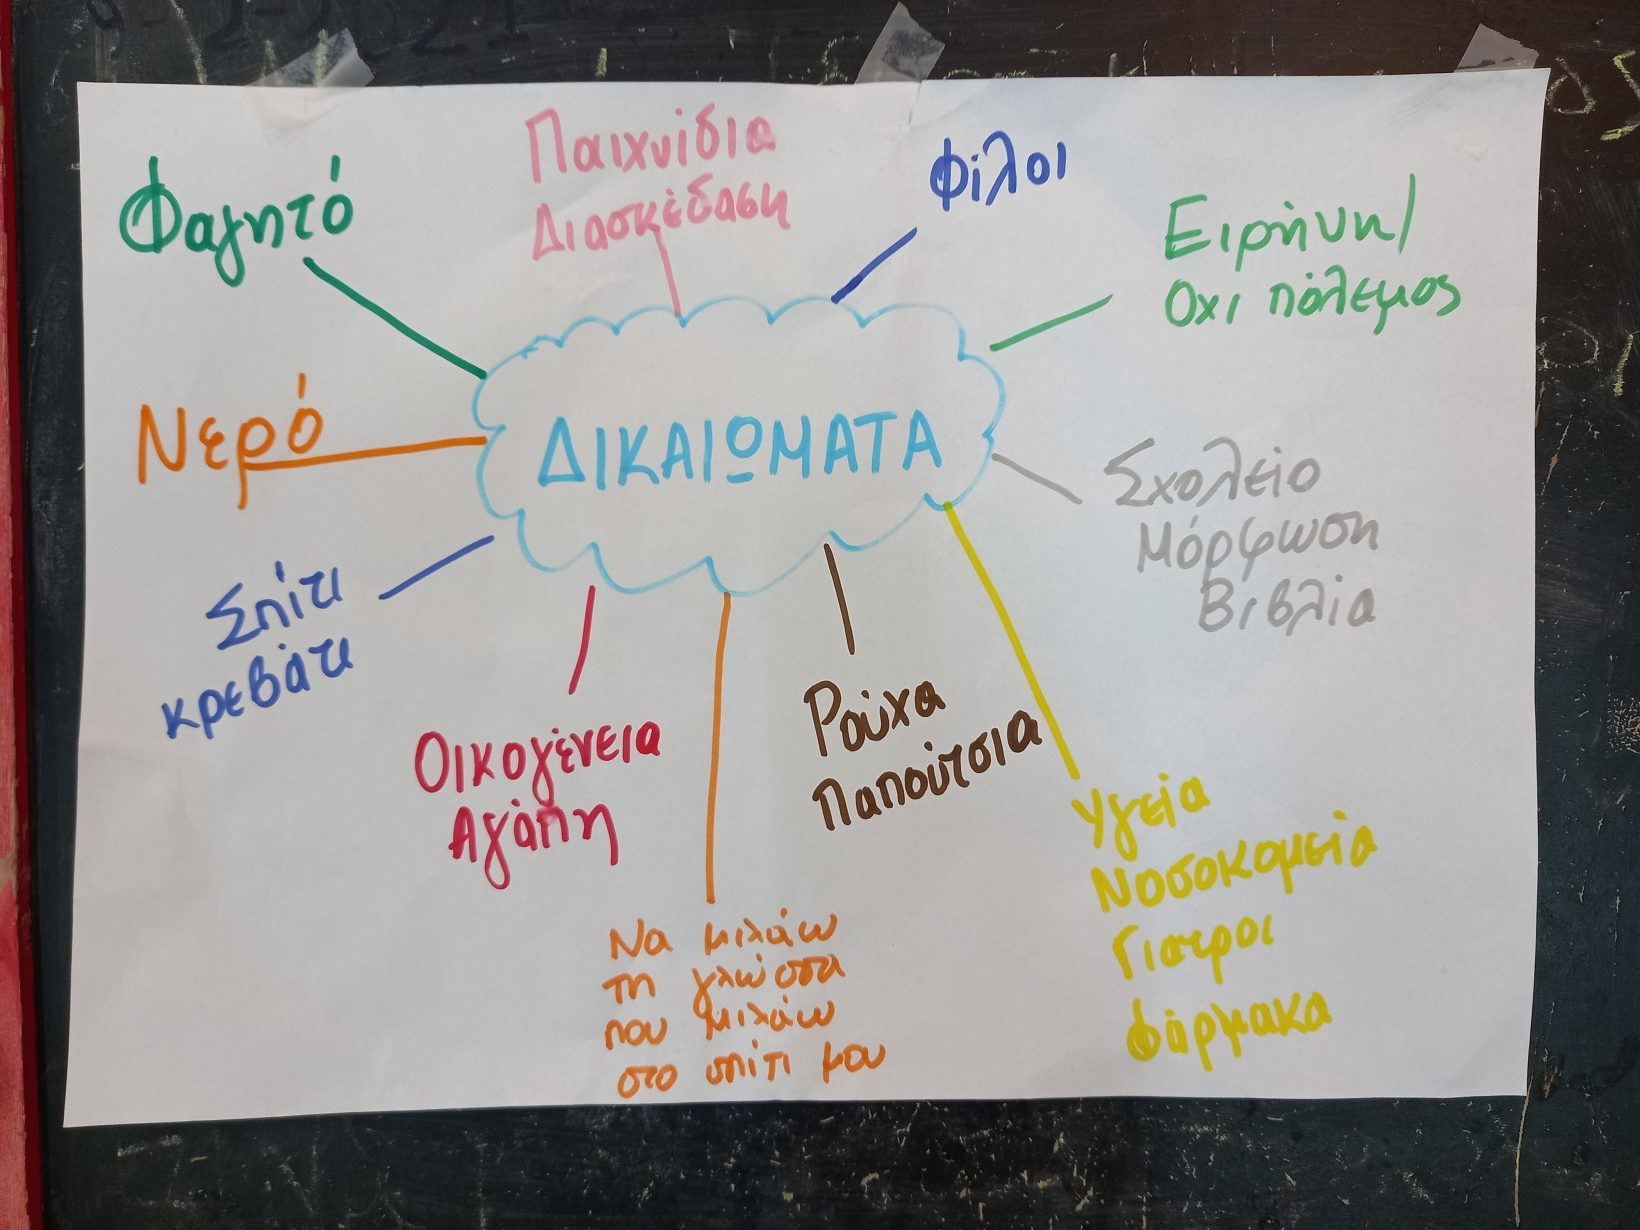 Φαγητό
Παιχνίδια
Διασκέδαση
Φίλοι
Ειρήνη/
Οχι πόλεμος
ΔΙΚΑΙΩΜΑΤΑ
Νερό
Σχολείο
Μόρφωση
Βιβλία
Σπίτι
κρεβάτι
Οικογένεια
Αγάπη
Ρούχα
Παπούτσια
Υγεία
Νοσοκομεία
Γιατροι
Φάρμακα
Να μιλάω
τη γλώσσα
που μιλάω
στο σπίτι μου